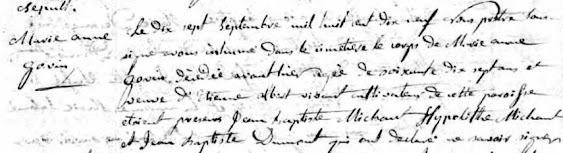 Sepult.
Marie anne
Govin
Le dix sept Septembre mil huit cent dix neuf Nous prêtre sous
signé avons inhumé dans le cimetière le corps de Marie anne
Govin, décédée avant hier agée de soixante dix sept ans et
veuve d'Etienne vivant cultivateur de cette paroisse
etoient presens Jean Baptiste Michaut Hypolithe Michaut
et Jean Baptiste Dumont qui ont declaré ne savoir signer